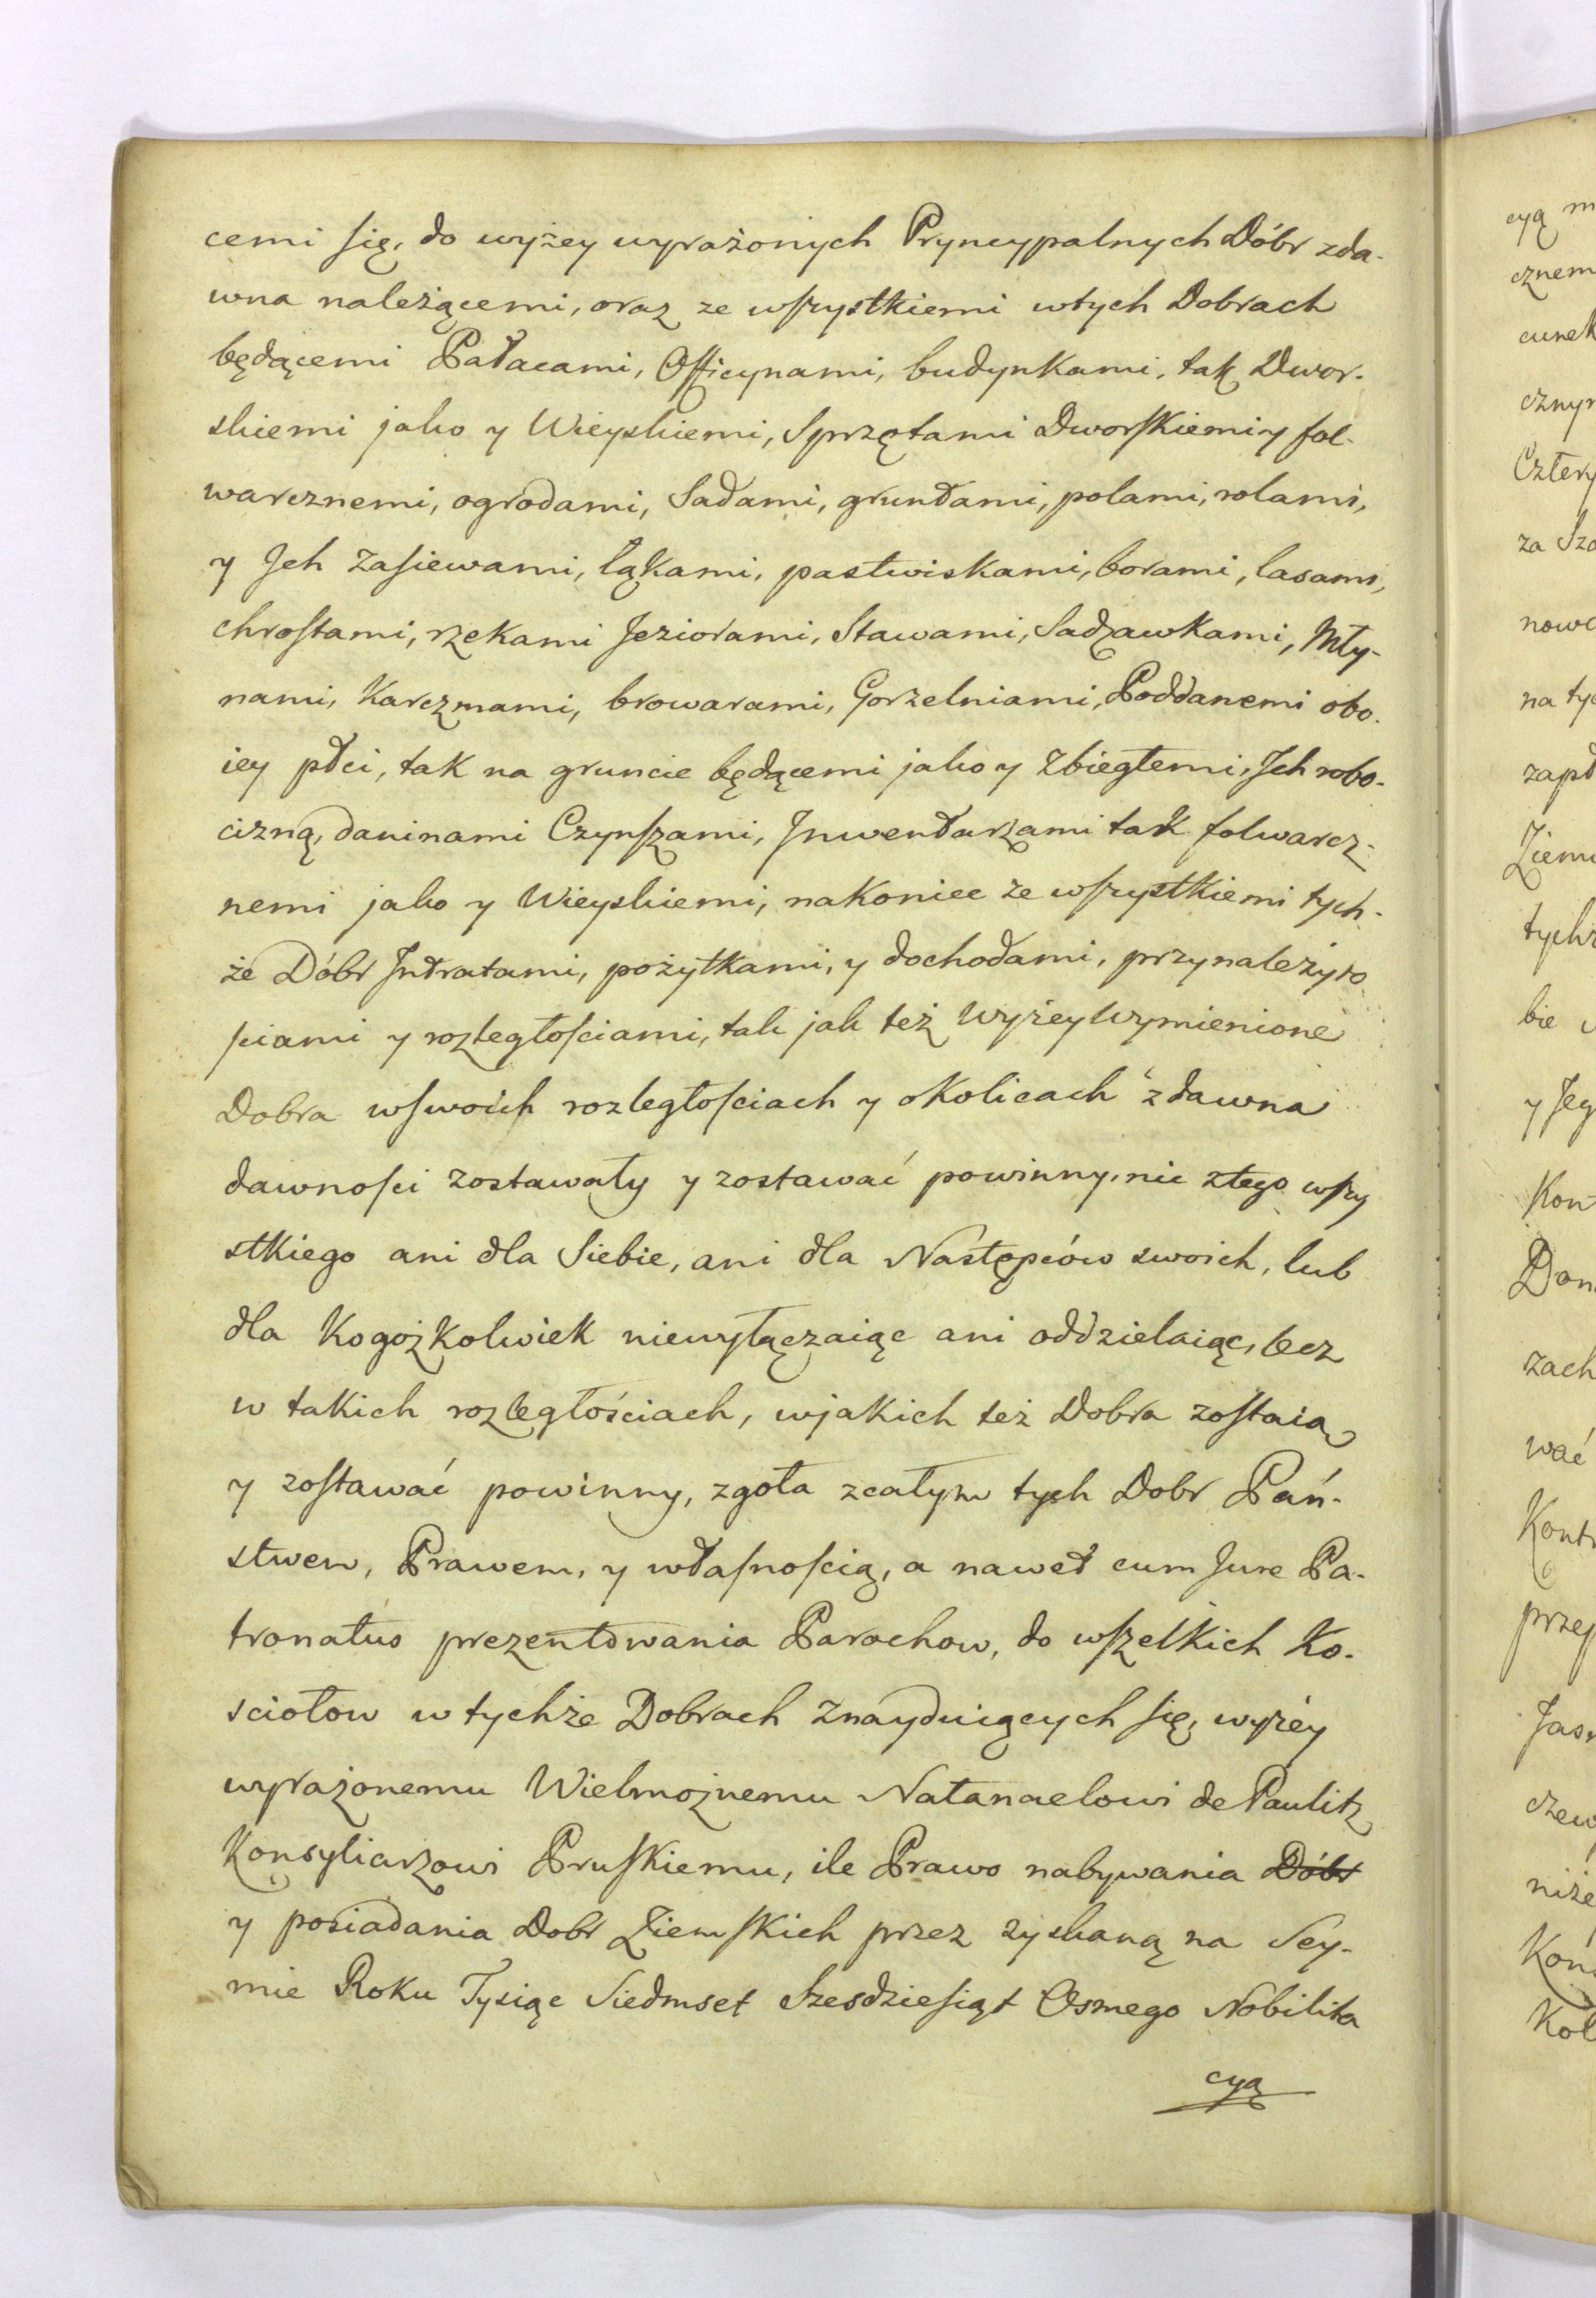 cemi się, do wyżey wyrażonych Pryncypalnych Dóbr zda-
wna należącemi, oraz ze wszystkiemi wtych Dobrach
będącemi Pałacami, Officynami, budynkami, tak Dwor-
skiemi jako y Wieyskiemi, Sprzętami Dworskiemi y fol-
warcznemi, ogrodami, Sadami, gruntami, polami, rolami,
y Jch zasiewami, łąkami, pastwiskami, borami, lasami,
chrostami, rzekami Jeziorami, Stawami, Sadzawkami, Mły-
nami, Karczmami, browarami, Gorzelniami, Poddanemi obo-
iey płci, tak na gruncie będącemi jako y Zbiegłemi, Jch robo-
cizną, daninami Czynszami, Jnwentarzami tak folwarcz-
nemi jako y Wieyskiemi, nakoniec ze wszystkiemi tych-
że Dóbr Jntratami, pożytkami, y dochodami, przynależyto
sciami y rozległościami, tak jak też Wyżey Wymienione
Dobra wswoich rozległościach y okolicach zdawna
dawności zostawały y zostawać powinny, nic ztego wszy
stkiego ani dla Siebie, ani dla Następców swoich, lub
dla Kogożkolwiek niewyłączaiąc ani oddzielaiąc, lecz
w takich rozległościach, wjakich też Dobra zostaią
y zostawać powinny, zgoła zcałym tych Dobr Pań-
stwem, Prawem, y własnością, a nawet cum Jure Pa-
tronatus prezentowania Parochow, do wszelkich Ko-
sciołow w tychże Dobrach Znayduiących się, wyżey
wyrażonemu Wielmożnemu Natanaelowi de Paulitz
Konsyliarzowi Pruskiemu, ile Prawo nabywania Dóbr
y posiadania Dobr Ziemskich przez zyskaną na Sey-
mie Roku Tysiąc Siedmset Szesdziesiąt Osmego Nobilita
cyą
cyą
cznem
cunek
Cztery
za
nowe
na
tychż
bie
y Jeg
zach
wać
Kontr
przep
niże
Kon